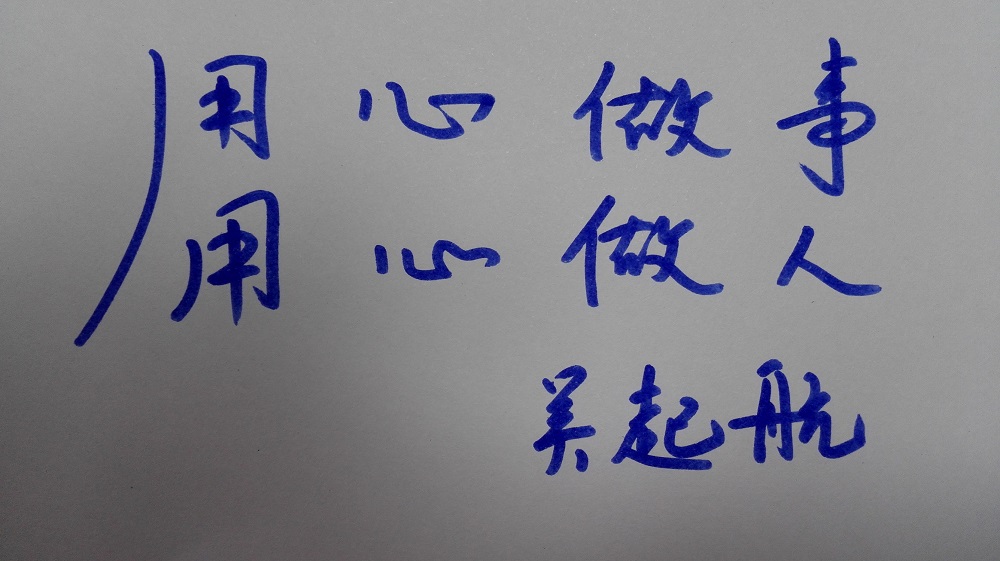 用心做事
用心做人
吴起航